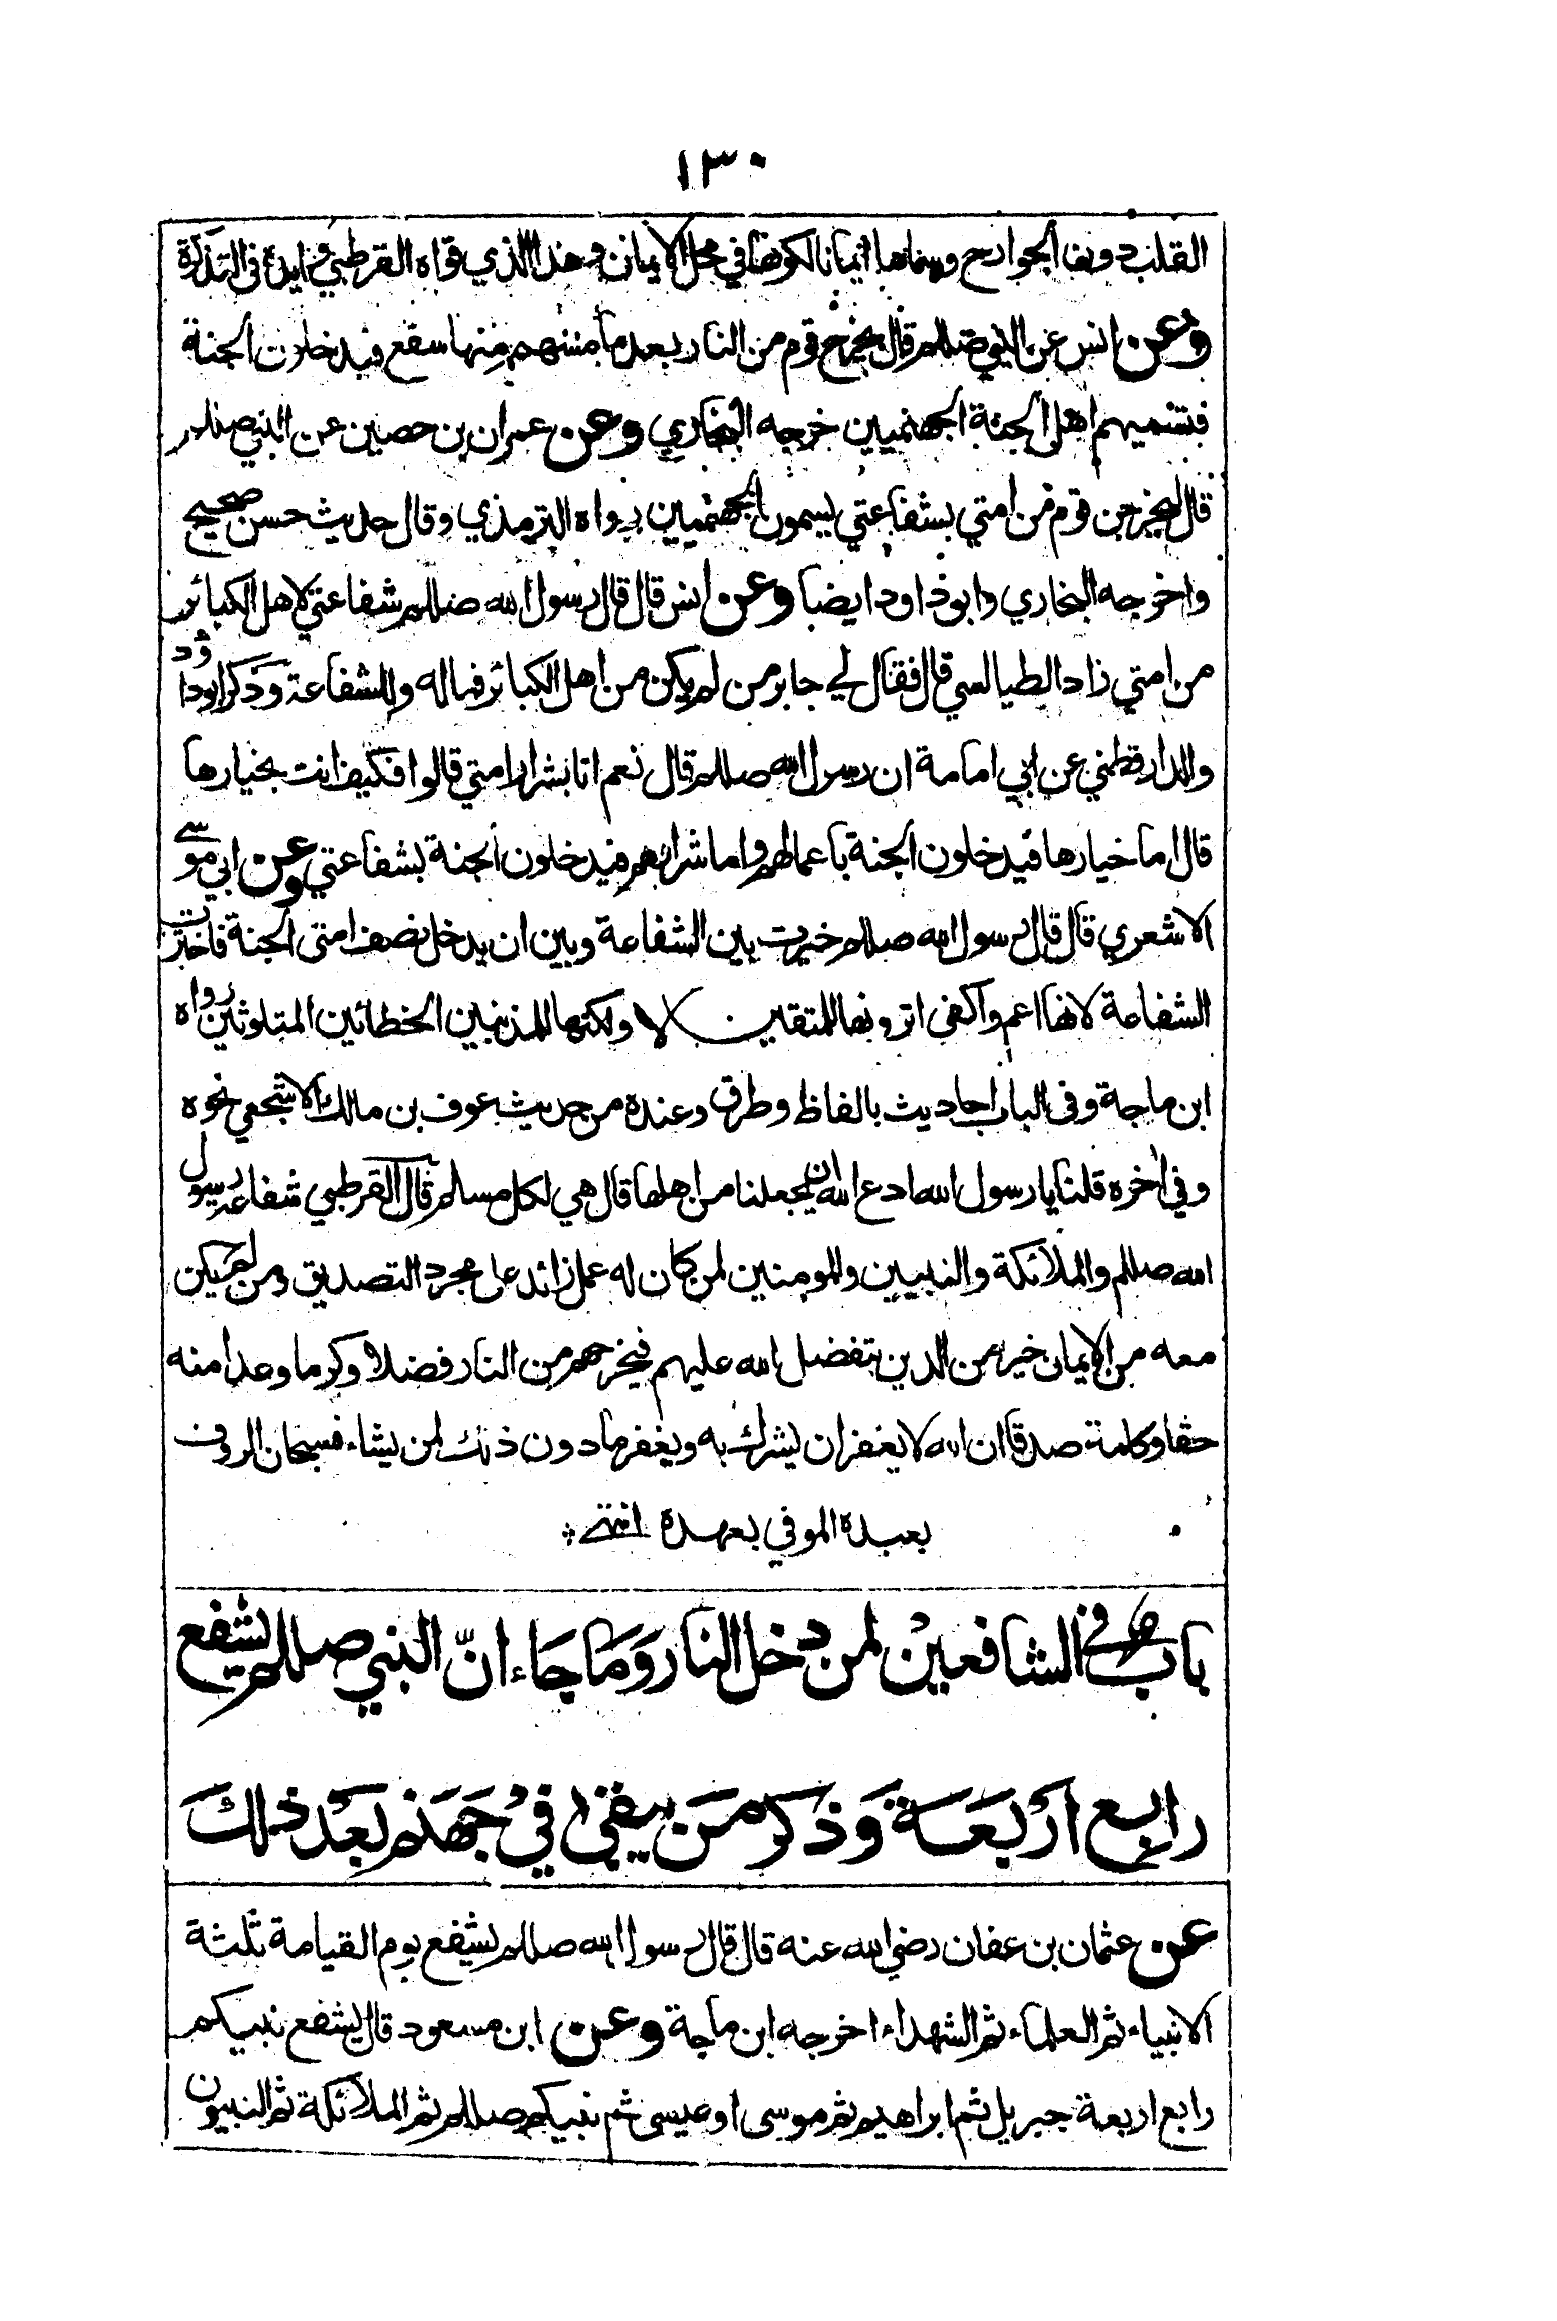 ١٣٠
القلب دون الجوارح وسماها ايمانا لكونها في محل الايمان وهذا الذي قواه القرطبي وايده في التذكرة
وعن انس عن النبي صللم قال يخرج قوم من النار بعد ما مسهم منها سفع فيدخلون الجنة
فيسميهم اهل الجنة الجهنميين خرجه البخاري وعن عمران بن حصين عن النبي صللم
قال ليخرجن قوم من امتي بشفاعتي يسمون الجهنميين رواه الترمذي وقال حديث حسن صحيح
واخرجه البخاري وابوداود ايضا وعن انس قال قال رسول الله صللم شفاعتي لاهل الكبائر
من امتي زاد الطيالسي قال فقال لي جابر من لم يكن من اهل الكبائر فما له وللشفاعة وذكر ابوداؤد
والدارقطني عن ابي امامة ان رسول الله صللم قال نعم انا بشرار امتي قالوا فكيف انت بخيارها
قال اما خيارها فيدخلون الجنة باعمالهم واما شرارهم فيدخلون الجنة بشفاعتي وعن ابي موسى
الاشعري قال قال رسول الله صللم خيرت بين الشفاعة وبين ان يدخل نصف امتى الجنة فاخترت
الشفاعة لانها اعم واكفى اترونها للمتقين لا ولكنها للمذنبين الخطائين المتلوثين رواه
ابن ماجة وفى الباب احاديث بالفاظ وطرق وعنده من حديث عوف بن مالك الاشجعي نحوه
وفي اخره قلنا يا رسول الله ادع الله ان يجعلنا من اهلها قال هي لكل مسلم قال القرطبي شفاعة رسول
الله صللم والملائكة والنبيين والمومنين لمن كان له عمل زائد على مجرد التصديق ومن لم يكن
معه من الايمان خير من الذين يتفضل الله عليهم فيخرجهم من النار فضلا وكرما وعدا منه
حقا وكلمة صدقا ان الله لا يغفر ان يشرك به ويغفر ما دون ذلك لمن يشاء فسبحان الروف
بعبده الموفي بعهده انتهى
باب في الشافعين لمن دخل النار وما جاء انّ النبي صللم يشفع
رابع اربعة وذكر من يبقى في جهنم بعد ذلك
عن عثمان بن عفان رضي الله عنه قال قال رسول الله صللم يشفع يوم القيامة ثلثة
الانبياء ثم العلماء ثم الشهداء اخرجه ابن ماجة وعن ابن مسعود قال يشفع نبيكم
رابع اربعة جبريل ثم ابراهيم ثم موسى او عيسى ثم نبيكم صللم ثم الملائكة ثم النبيون